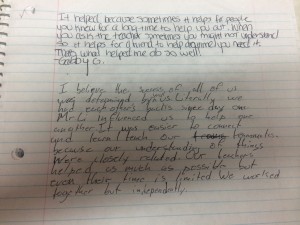 It helped, because sometimes it helps for people
you knew for a long time to help you out. When
you ask the teacher sometimes you might not understand
so it helps for a friend to help anytime you need it.
That's what helped me do so well!
I believe the scores of all of us
was determined by us. Literally we
had eachothers skills aged day can
Mr. C influenced us to help one
another. It was easier to commit
and learn/teach our
because our understanding of things
were closely related. Our teachers
helped as much as possible but
even their time is limited. We worked
together but independently.